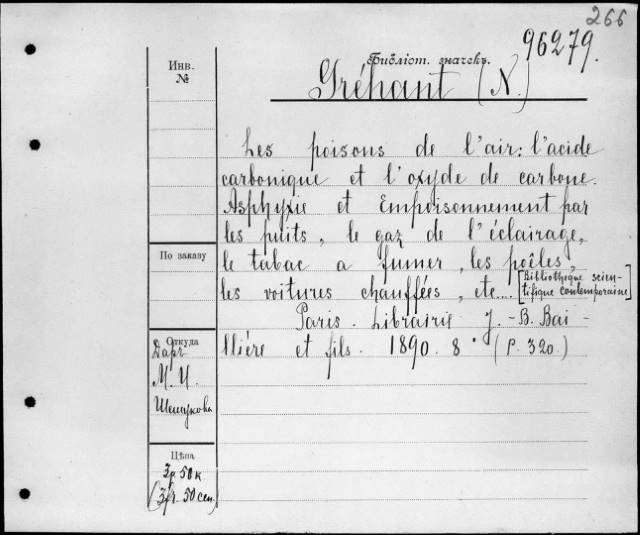 266
96279.
Библіот. значекъ.
Gréhant (N.)
Инв.
№
Les poisons de l'air: l'acide
carbonique et l'oxyde de carbone.
Asphyxie et Empoisonnement par
les puits, le gaz de l'éclairage,
le tabac a fumer, les poêles,
les voitures chauffées, etc....
[Bibliothèque scien-
tifique contemporaine]
Paris. Librairie J.-B. Bai-
llière et fils. 1890. 8° (P. 320.)
По заказу
Откуда
Даръ
М. И.
Шемукова
Цѣна
3р 50 к
(3fr. 50 cen.)